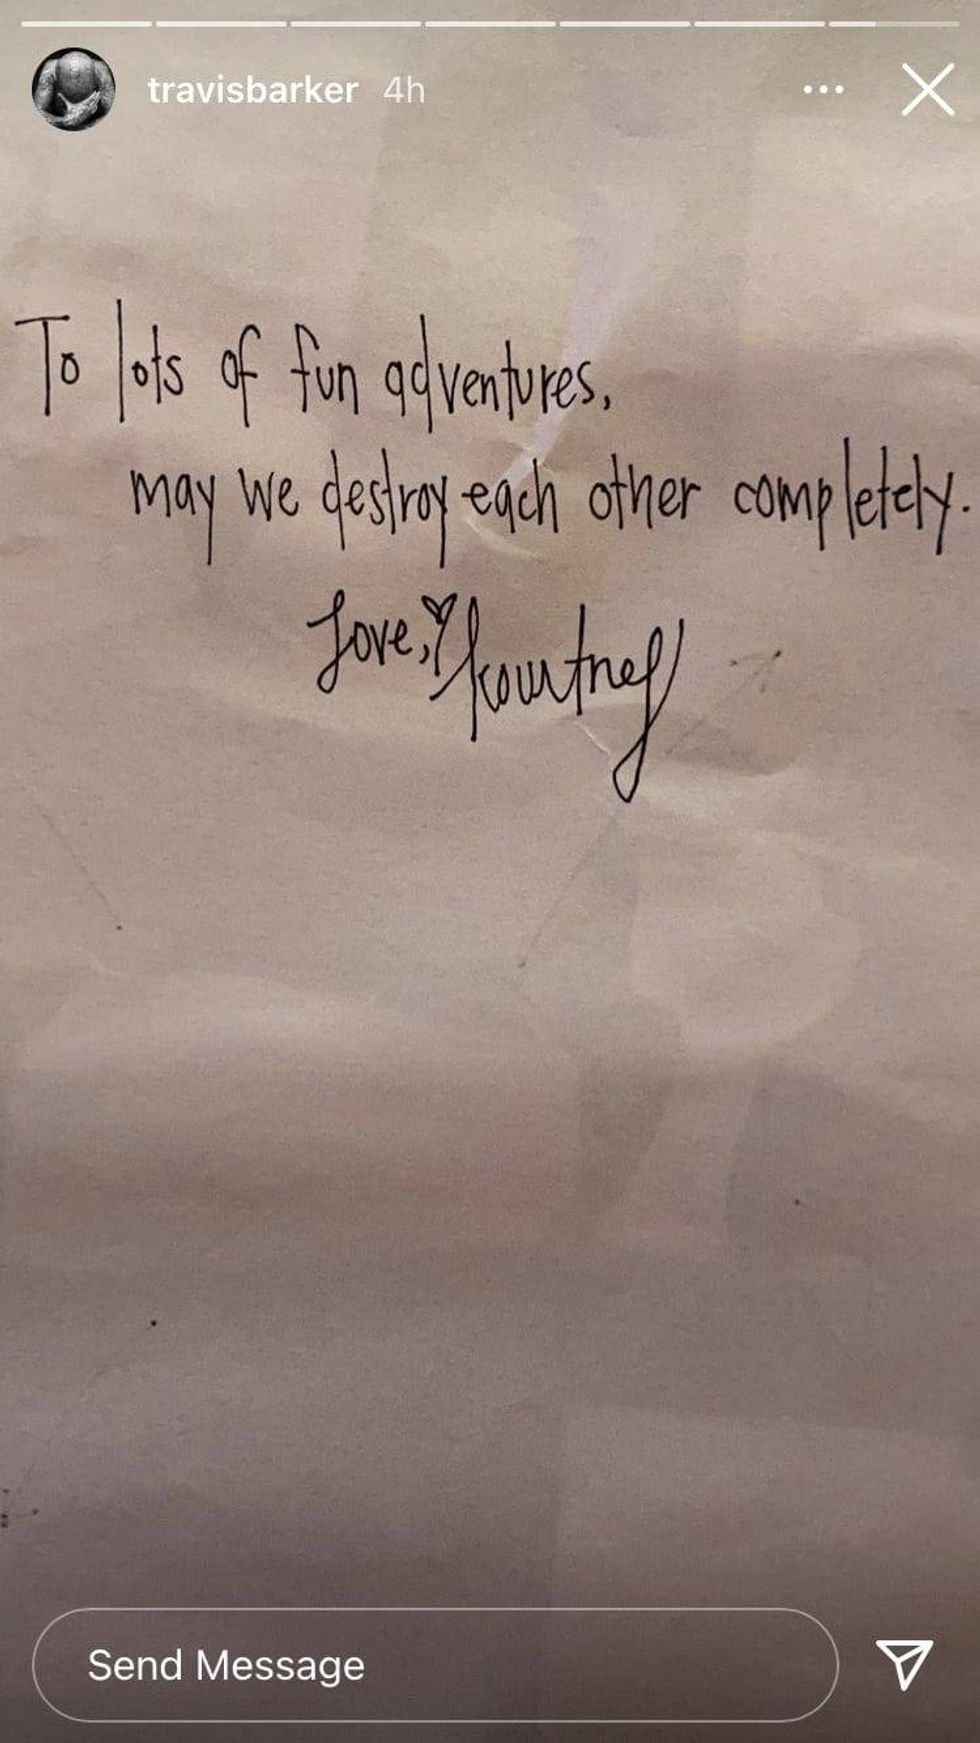 travisbarker 4h
To lots of fun adventures,
may we destroy each other completely.
Love, kourtney
Send Message